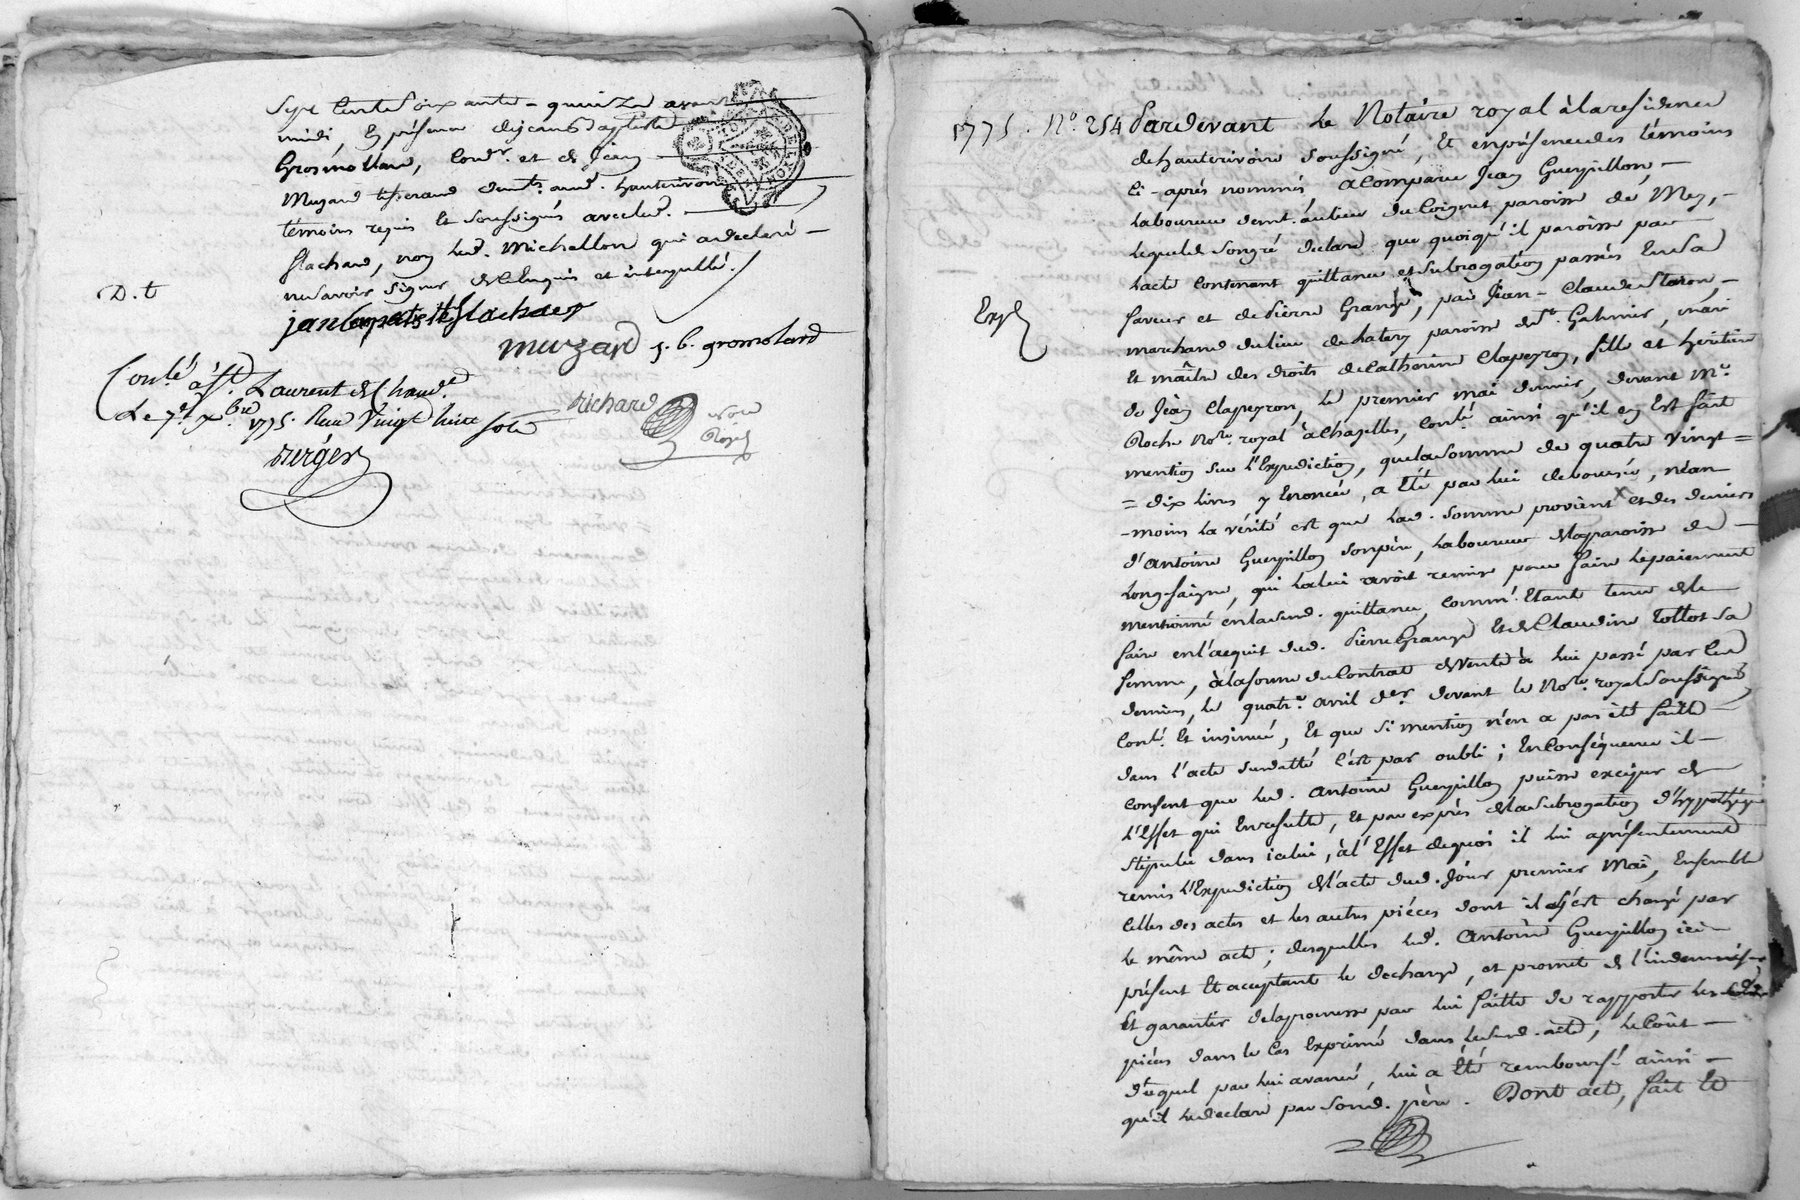 Sept cents soixante-quinze avant
midi, En présence de jean Baptiste
Grosmollard, Cordr. et de Jean
Muzard tisserand demts. aud. hauterivoire
témoins requis et soussignés avec led.
flachard, non led. Michallon qui a declaré
ne savoir signer de ce Enquis et interpellé./.
D. t
jean baptiste flachard
muzard j. b. gromolard
Conlé. à St. Laurent de Chamt.
Le 7e. xbre. 1775. Reçu Vingt huit sols
Richard Not. Royal
Berger
1775. No. 254 Pardevant Le Notaire royal à la residence
de hauterivoire soussigné, Et en présence des témoins
Ci-après nommés a Comparu Jean Guerpillon,
Laboureur demt. au lieu du Coignet paroisse de Meys,
Lequel de son gré declare que quoiqu'il paroisse par
L'acte Contenant quittance et Subrogation passés En sa
Expé
faveur et de Pierre Grange, par Jean-Claude Staron,
marchand du lieu de paroisse de St. Galmier, mari
Et maître des droits de Catherine Clapeyron, fille et héritière
de Jean Clapeyron, Le premier mai dernier, devant Me.
Roche Nore. royal à Chazelles, Conlé. ainsi qu'il en Est fait
mention sur L'Expediction, que la somme de quatre vingt=
=dix livres y Enoncée, a Eté par lui deboursée, néan-
-moins la vérité est que lad. somme provient des deniers
d'Antoine Guerpillon son père, Laboureur de la paroisse de
Long-saigne, qui la lui avoit remise pour faire le paiement
mentionné en lasusd. quittance, Comm' Etant tenu de le
faire en l'acquit dud. Pierre Grange Et de Claudine Tollot sa
femme, à la forme du Contrat de Vente à lui passé par Ces
derniers, le quatre. avril der. devant le Nore. royal soussigné
Conlé. Et insinué, Et que si mention n'en a pas été faitte
dans l'acte surdatté C'est par oubli; En Conséquence il
Consent que led. Antoine Guerpillon puisse exciper de
L'Effet qui En resulte, Et par exprès de la subrogation d'hypothèque
stipulée dans icelui, à l'Effet de quoi il lui a présentement
remis L'Expediction de L'acte dud. jour premier Mai, Ensemble
Celles des actes et les autres pièces dont il s'est chargé par
le même acte; desquelles led. Antoine Guerpillon ici
présent Et acceptant le decharge, et promet de l'indemniser
Et garantir de la promesse par lui faitte de rapporter les
pièces dans le Cas Exprimé dans le susd. acte, le Coût
duquel par lui avancé, lui a Eté remboursé ainsi
qu'il le declare par sond. père. Dont acte, fait Et